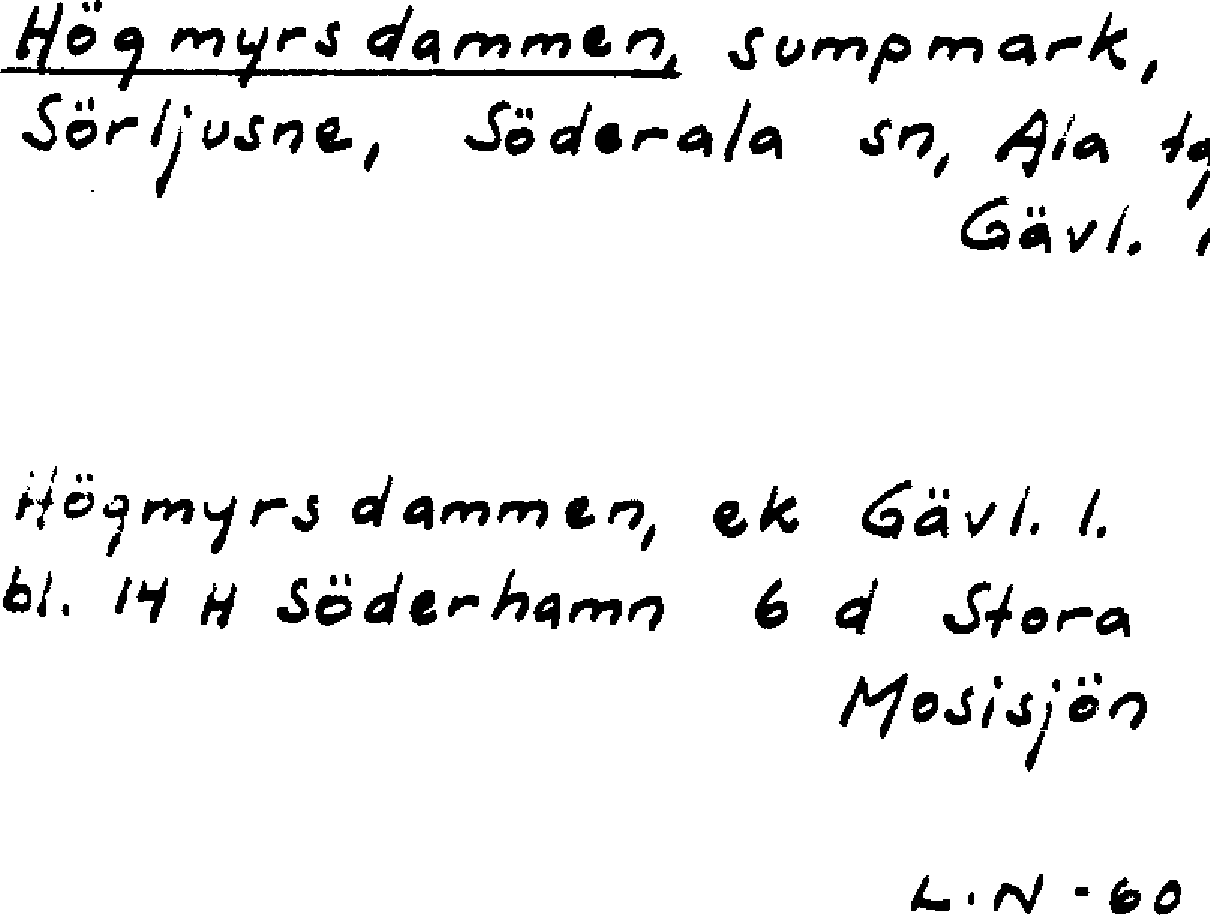 Högmyrsdammen, sumpmark,
Sörljusne, Söderala sn, Ala tg
Gävl. l
Högmyrsdammen, ek Gävl. l.
bl. 14 H Söderhamn 6 d Stora
Mosisjön
L.N - 60